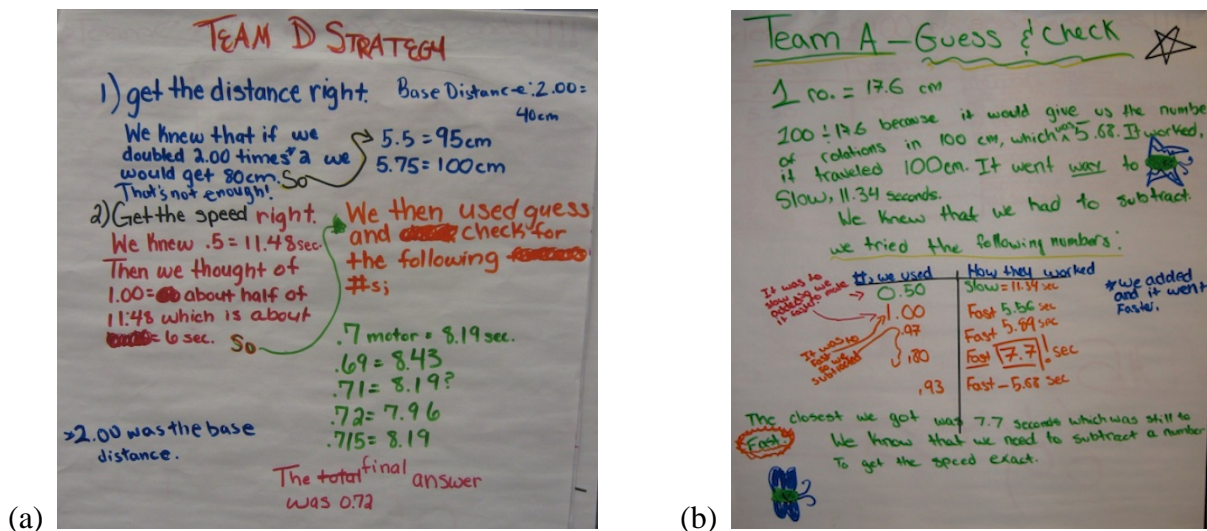 TEAM D STRATEGY
1) get the distance right.
Base Distance: 2.00 =
40cm
We Knew that if we
doubled 2.00 times 2 we
would get 80cm. So
That's not enough!
5.5 = 95cm
5.75 = 100cm
2) Get the speed right.
We Knew .5 = 11.48 sec.
Then we thought of
1.00 = about half of
11.48 which is about
= 6 sec. So
We then used guess
and check for
the following
#s;
.7 motor = 8.19 sec.
.69 = 8.43
.71 = 8.19?
.72 = 7.96
.715 = 8.19
>2.00 was the base
distance.
The total final answer
was 0.72
(a)
Team A - Guess & Check
1 ro. = 17.6 cm
100 ÷ 17.6 because it would give us the number
of rotations in 100 cm, which was 5.68. It worked,
it traveled 100cm. It went way to
Slow, 11.34 seconds.
We knew that we had to subtract.
we tried the following numbers:
#s we used
How they worked
0.50
Slow = 11.34 sec
1.00
Fast 5.56 sec
.97
Fast 5.89 sec
.80
Fast 7.7! sec
.93
Fast - 5.68 sec
It was to
slow so we
added to make
it faster
It was to
Fast so we
subtracted
*we added
and it went
Faster.
The closest we got was 7.7 seconds which was still to
Fast. We know that we need to subtract a number
To get the speed exact.
(b)